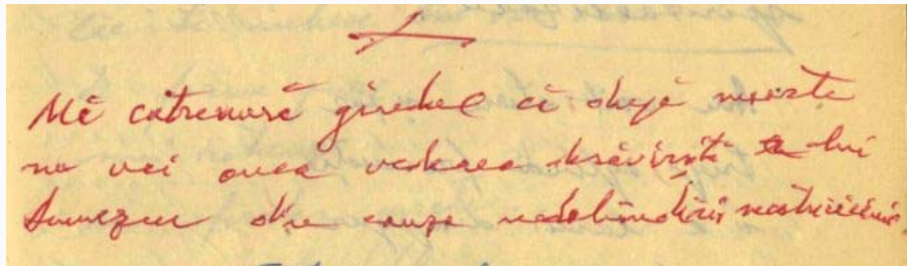 Mă cutremură gândul că după moarte
nu voi avea vederea desăvîrșită a lui
Dumnezeu din cauza nedobîndirii nestricăciunii.